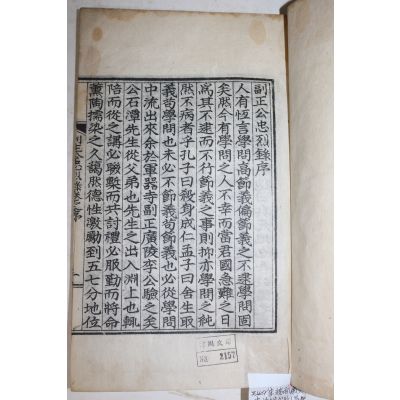 副正公忠烈錄序
人有恆言學問高節義偏節義之不逮學問固
矣然今有學問之人不幸而當君國急難之日
爲其不逮而不行節義之事則抑亦學問之純
然不病者乎孔子曰殺身成仁孟子曰舍生取
義苟學問也未必不節義苟節義也必從學問
中流出來余於軍器寺副正廣陵李公驗之矣
公石潭先生從父弟也先生之出入淵上也輒
陪而從之講必聯槧而共討禮必服勤而將命
薰陶擩染之久謁然德性激勵到五七分地位
序
2157